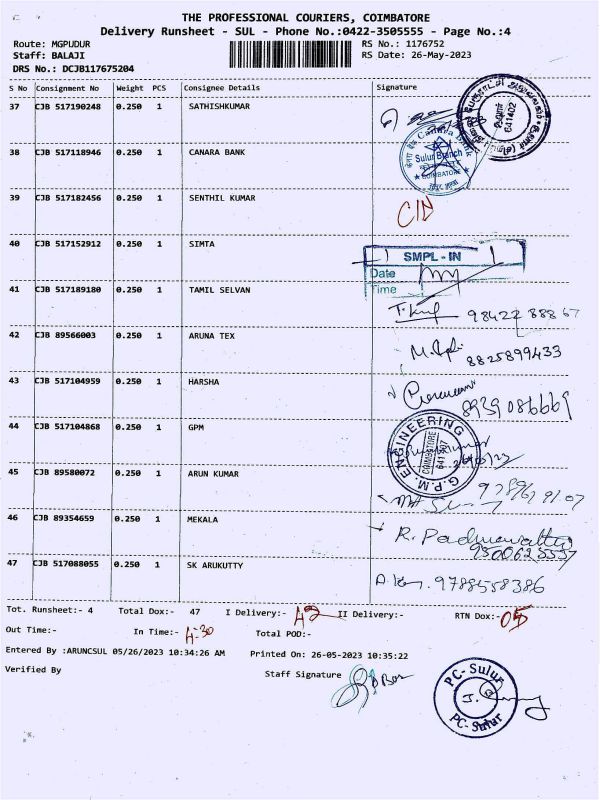 THE PROFESSIONAL COURIERS, COIMBATORE
Delivery Runsheet - SUL - Phone No.:0422-3505555 - Page No.:4
Route: MGPUDUR
RS No.: 1176752
Staff: BALAJI
RS Date: 26-May-2023
DRS No.: DCJB117675204
S No Consignment No Weight PCS Consignee Details Signature
37 CJB 517190248 0.250 1 SATHISHKUMAR
641402
38 CJB 517118946 0.250 1 CANARA BANK
Canara Bank
Sulur Branch
COIMBATORE
39 CJB 517182456 0.250 1 SENTHIL KUMAR
40 CJB 517152912 0.250 1 SIMTA
SMPL - IN
Date
Time
41 CJB 517189180 0.250 1 TAMIL SELVAN
98422 88867
42 CJB 89566003 0.250 1 ARUNA TEX
8825899433
43 CJB 517104959 0.250 1 HARSHA
8939086669
44 CJB 517104868 0.250 1 GPM
G.P.M. ENGINEERING
COIMBATORE
641 407
45 CJB 89580072 0.250 1 ARUN KUMAR
46 CJB 89354659 0.250 1 MEKALA
R. Padmavathy
47 CJB 517088055 0.250 1 SK ARUKUTTY
9788558386
Tot. Runsheet:- 4 Total Dox:- 47 I Delivery:- 42 II Delivery:- RTN Dox:- 05
Out Time:- In Time:- 4-30 Total POD:-
Entered By :ARUNCSUL 05/26/2023 10:34:26 AM Printed On: 26-05-2023 10:35:22
Verified By Staff Signature
PC-Sulur
PC-Sulur